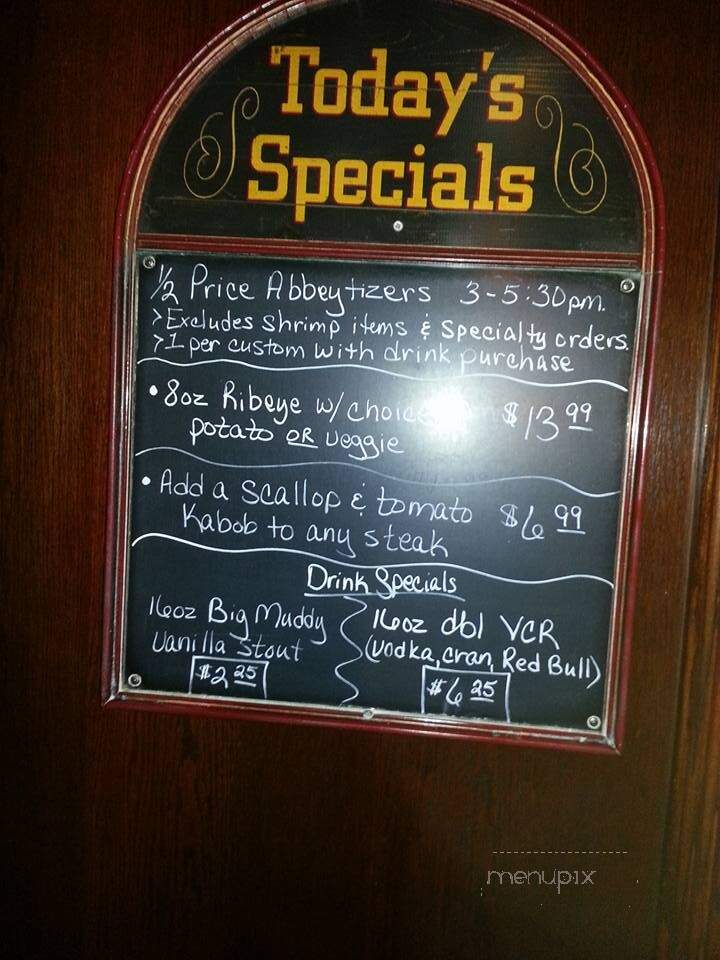 Today's
Specials
1/2 Price Abbeytizers 3-5:30pm.
>Excludes Shrimp items & Specialty orders.
>1 per custom with drink purchase
• 8oz Ribeye w/ choice $13.99
potato OR veggie
• Add a Scallop & tomato $6.99
Kabob to any steak
Drink Specials
16oz Big Muddy
Vanilla Stout
$2.25
16oz dbl VCR
(vodka, cran, Red Bull)
$6.25
menupix